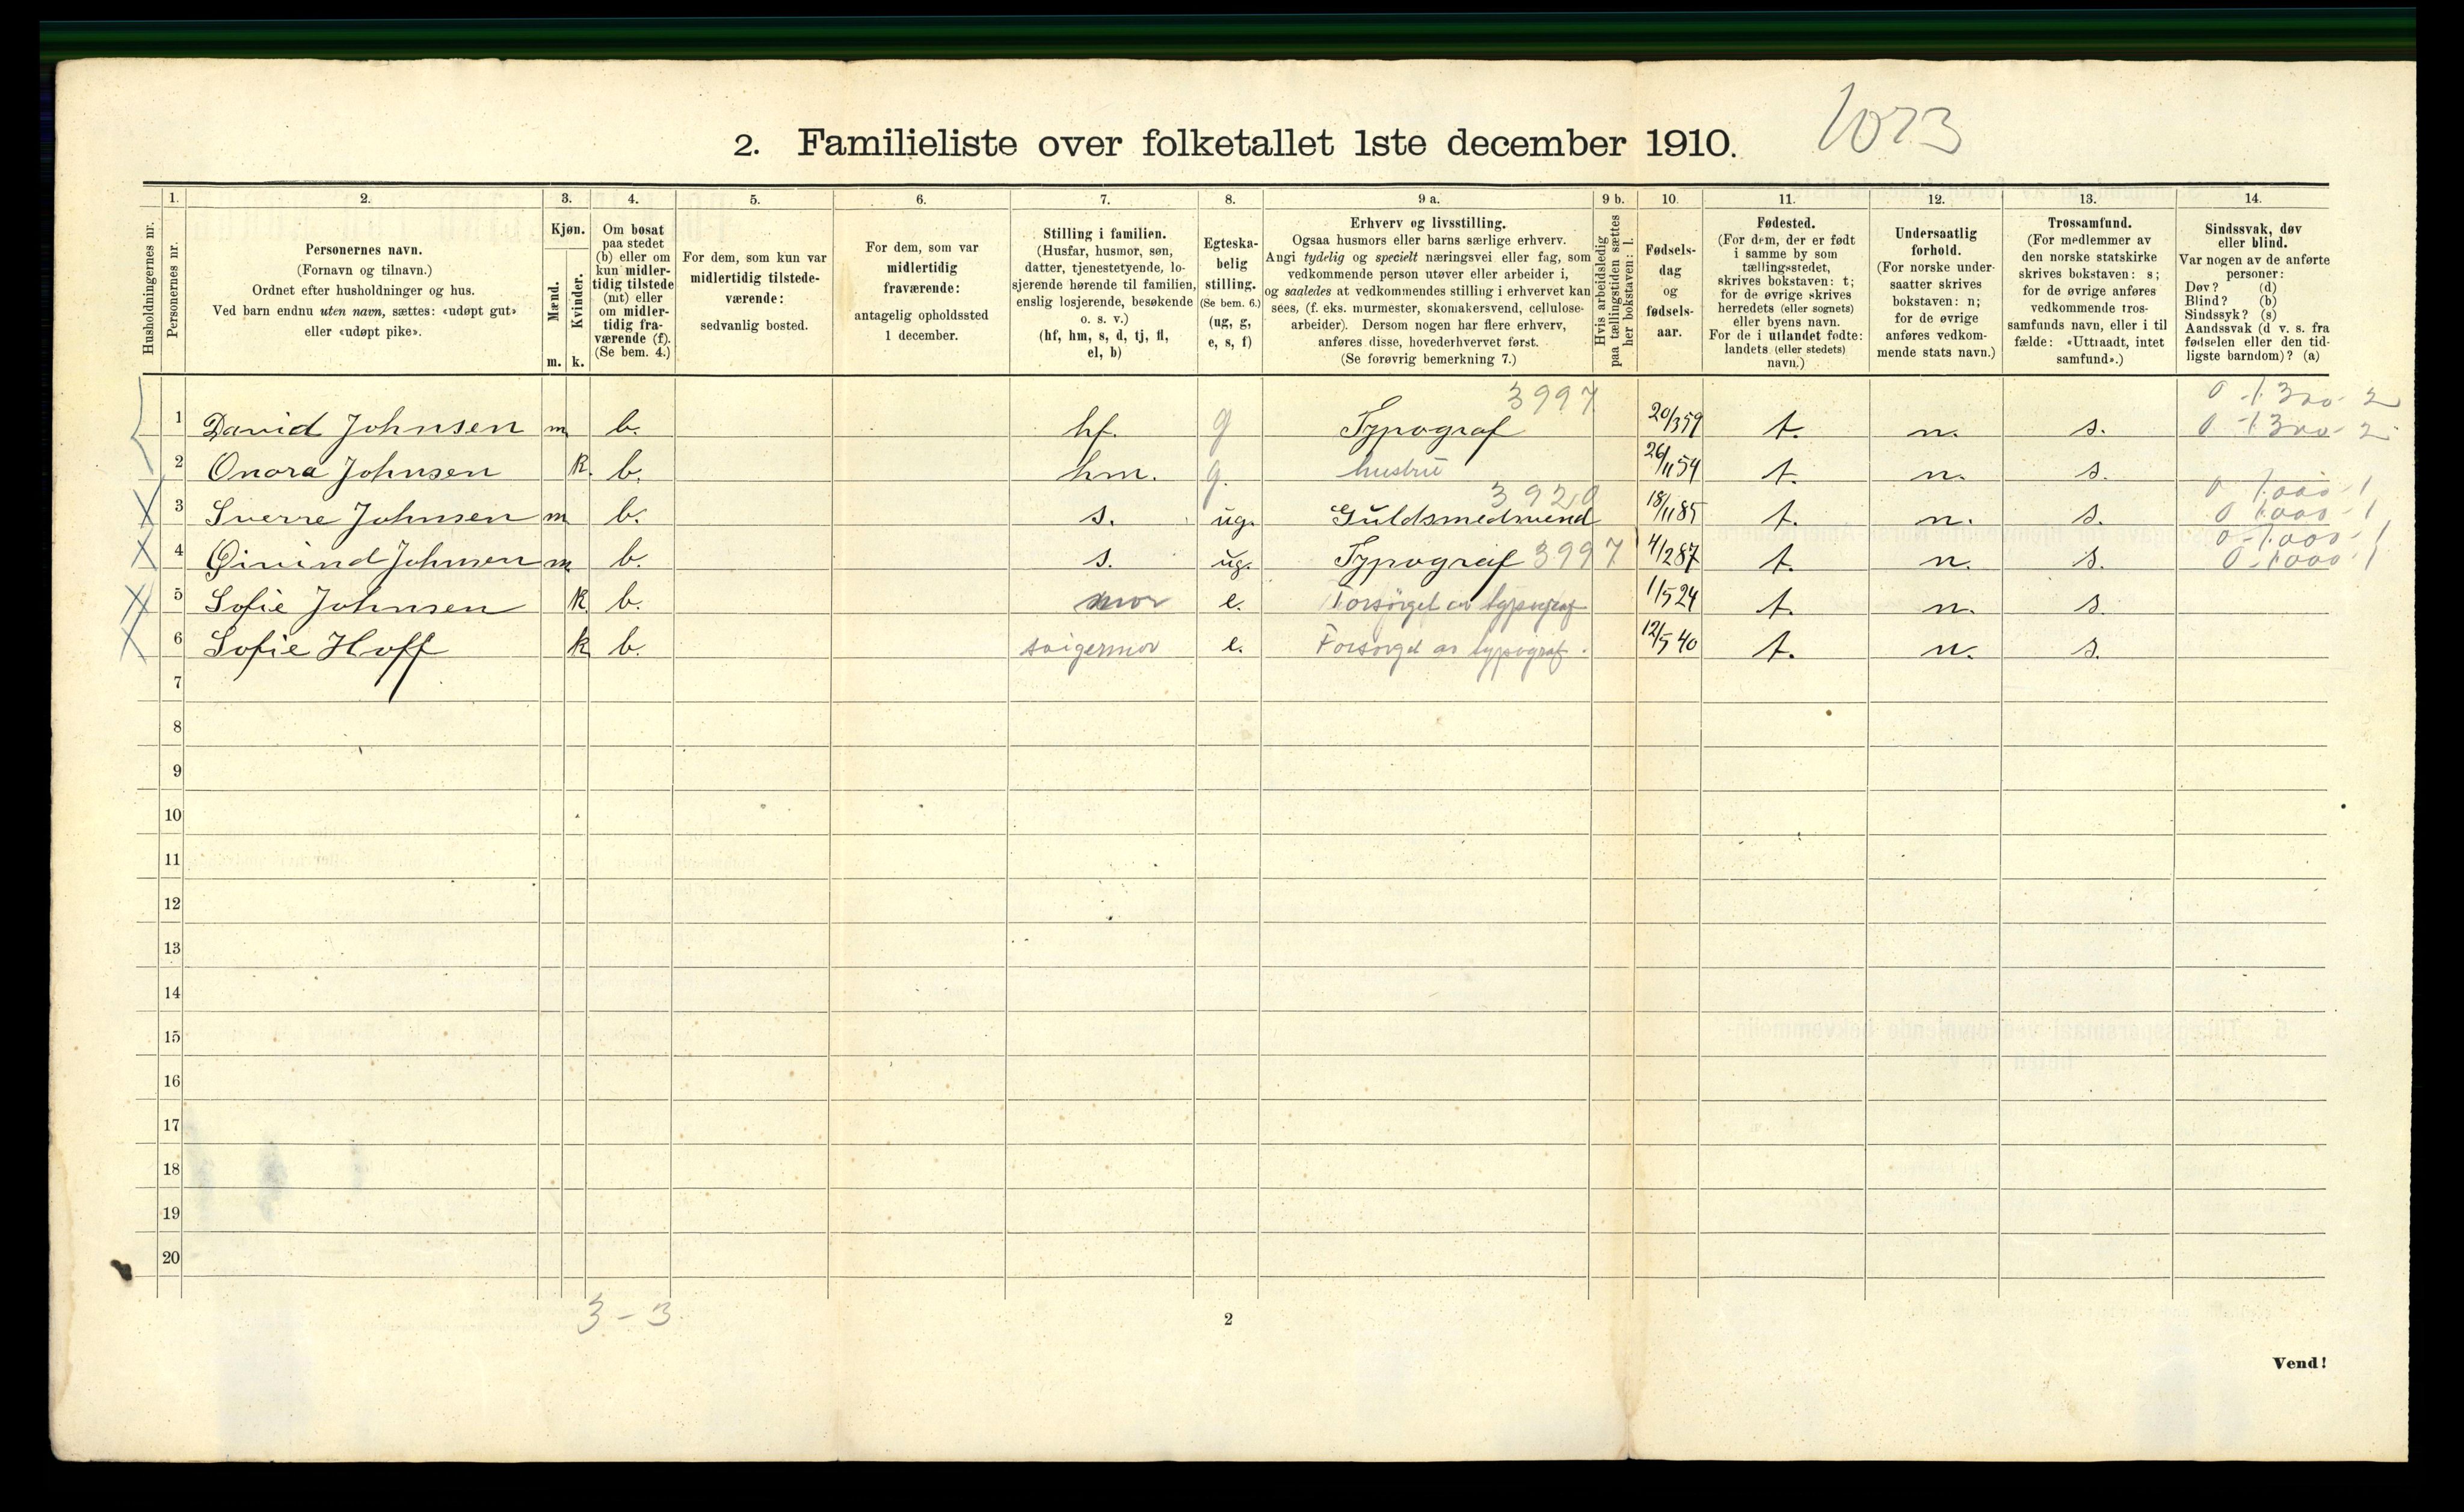 2. Familieliste over folketallet 1ste december 1910.
1073
Husholdningernes nr.
1.
Personernes nr.
2.
Personernes navn.
(Fornavn og tilnavn.)
Ordnet efter husholdninger og hus.
Ved barn endnu uten navn, sættes: «udøpt gut»
eller «udøpt pike».
3.
Kjøn.
Mænd.
Kvinder.
m. k.
4.
Om bosat
paa stedet
(b) eller om
kun midler-
tidig tilstede
(mt) eller
om midler-
tidig fra-
værende (f).
(Se bem. 4.)
5.
For dem, som kun var
midlertidig tilstede-
værende:
sedvanlig bosted.
6.
For dem, som var
midlertidig
fraværende:
antagelig opholdssted
1 december.
7.
Stilling i familien.
(Husfar, husmor, søn,
datter, tjenestetyende, lo-
sjerende hørende til familien,
enslig losjerende, besøkende
o. s. v.)
(hf, hm, s, d, tj, fl,
el, b)
8.
Egteska-
belig
stilling.
(Se bem. 6.)
(ug, g,
e, s, f)
9 a.
Erhverv og livsstilling.
Ogsaa husmors eller barns særlige erhverv.
Angi tydelig og specielt næringsvei eller fag, som
vedkommende person utøver eller arbeider i,
og saaledes at vedkommendes stilling i erhvervet kan
sees, (f. eks. murmester, skomakersvend, cellulose-
arbeider). Dersom nogen har flere erhverv,
anføres disse, hovederhvervet først.
(Se forøvrig bemerkning 7.)
9 b.
Hvis arbeidsledig
paa tællingstiden sættes
her bokstaven: l.
10.
Fødsels-
dag
og
fødsels-
aar.
11.
Fødested.
(For dem, der er født
i samme by som
tællingsstedet,
skrives bokstaven: t;
for de øvrige skrives
herredets (eller sognets)
eller byens navn.
For de i utlandet fødte:
landets (eller stedets)
navn.)
12.
Undersaatlig
forhold.
(For norske under-
saatter skrives
bokstaven: n;
for de øvrige
anføres vedkom-
mende stats navn.)
13.
Trossamfund.
(For medlemmer av
den norske statskirke
skrives bokstaven: s;
for de øvrige anføres
vedkommende tros-
samfunds navn, eller i til
fælde: «Uttraadt, intet
samfund».)
14.
Sindssvak, døv
eller blind.
Var nogen av de anførte
personer:
Døv? (d)
Blind? (b)
Sindssyk? (s)
Aandssvak (d v. s. fra
fødselen eller den tid-
ligste barndom)? (a)
3997
1 David Johnsen m b. hf. g Typograf 20/3 59 t. n. s.
2 Onora Johnsen k. b. hm. g. hustru 26/11 54 t. n. s.
3920
3 Sverre Johnsen m b. s. ug. Guldsmedsvend 18/11 85 t. n. s.
4 Øivind Johnsen m b. s. ug. Typograf 3997 4/2 87 t. n. s.
5 Sofie Johnsen k b. mor e. Forsørget av typograf 1/5 24 t. n. s.
6 Sofie Hoff k b. svigermor e. Forsørget av typograf. 12/5 40 t. n. s.
7
8
9
10
11
12
13
14
15
16
17
18
19
20
3-3
2
Vend!